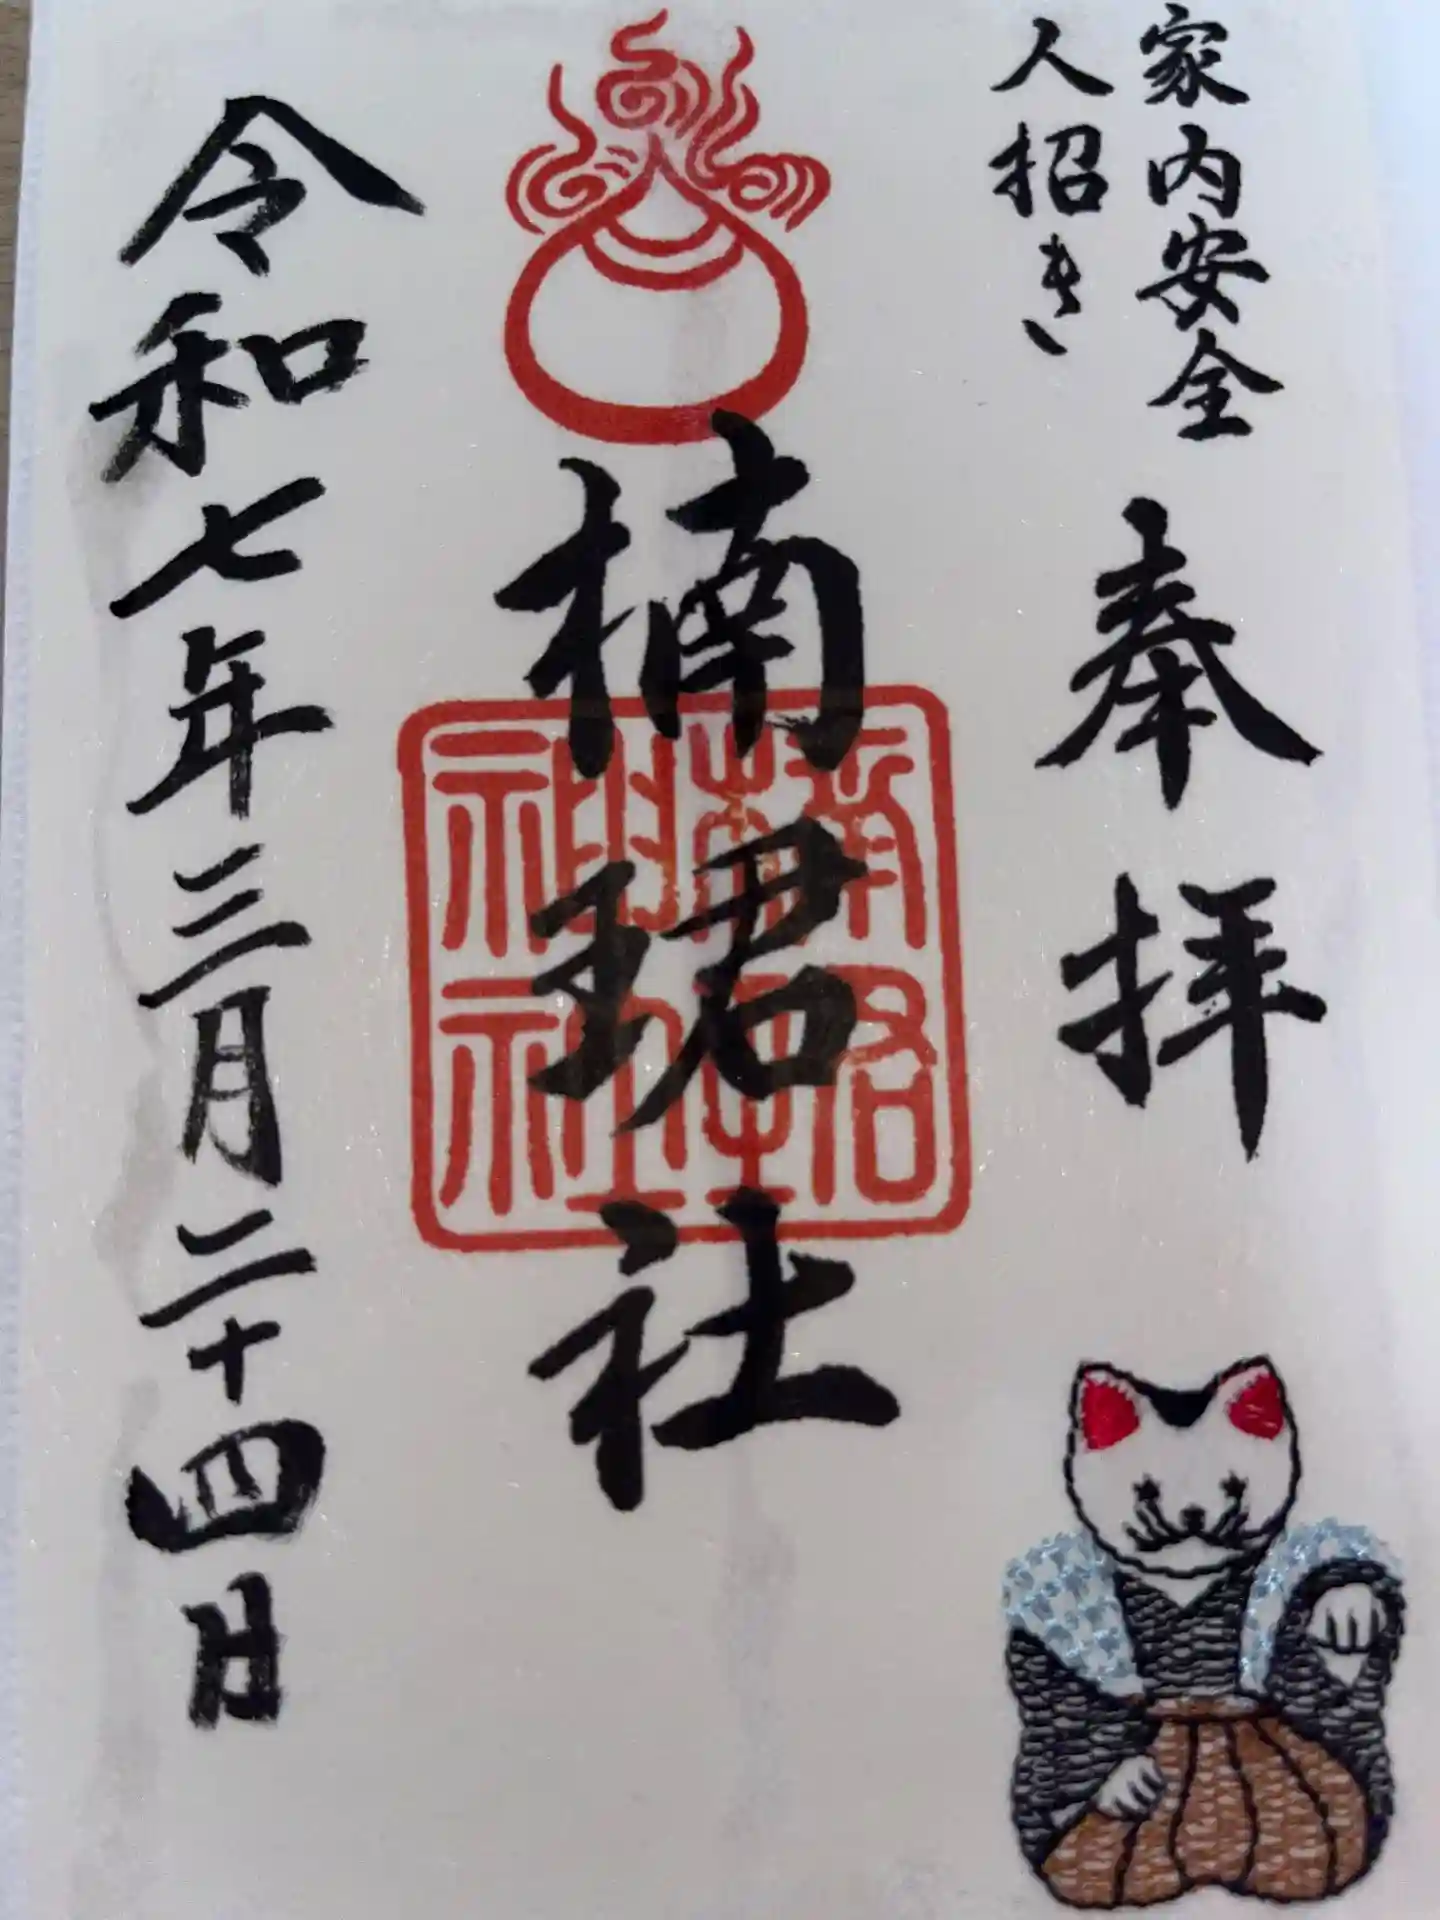 家内安全
人招き
奉拝
楠珺社
楠珺神社
令和七年三月二十四日